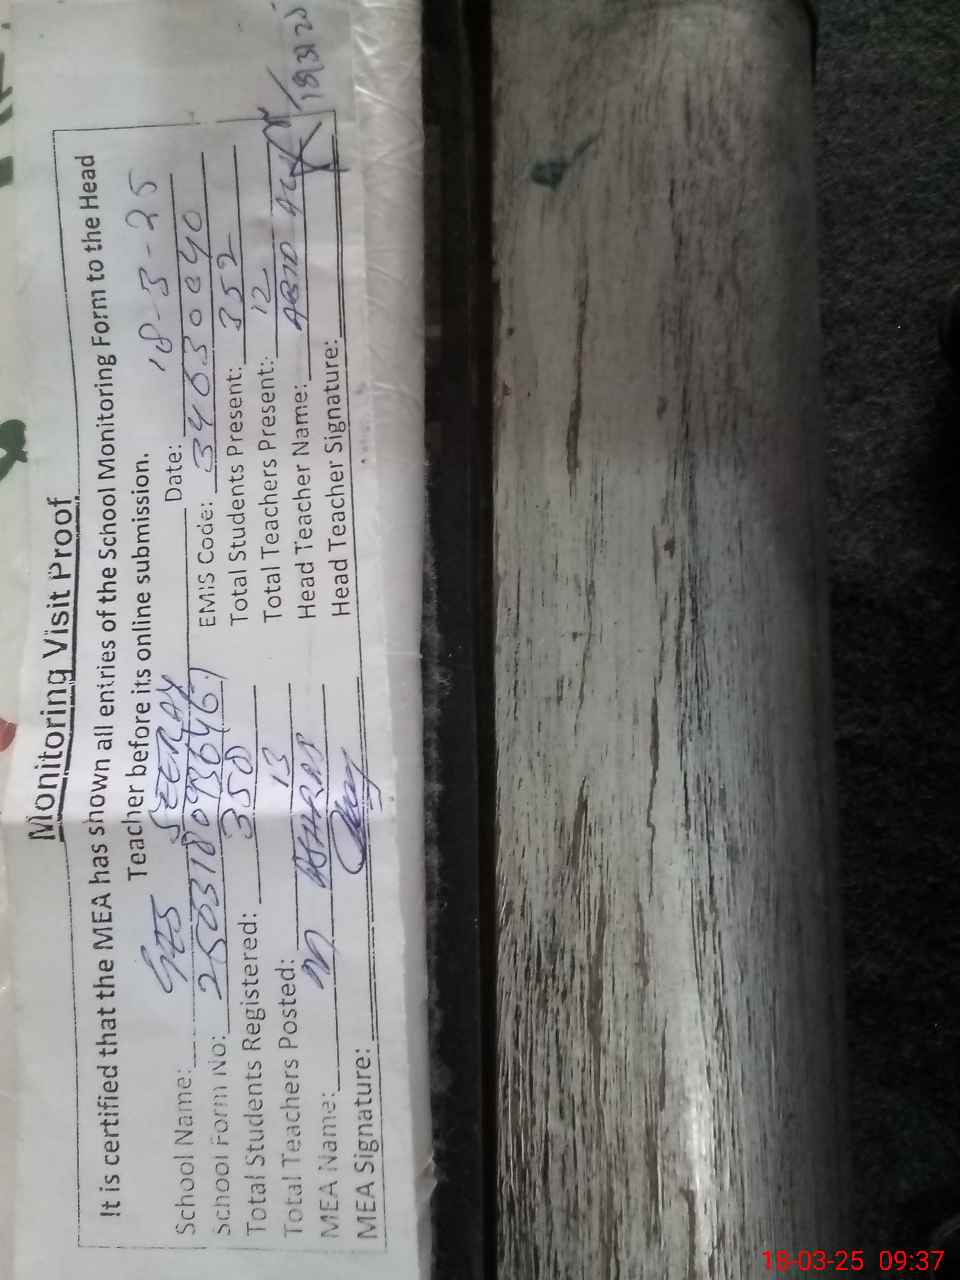 Monitoring Visit Proof
It is certified that the MEA has shown all entries of the School Monitoring Form to the Head
Teacher before its online submission.
School Name: GES SEERAY Date: 18-3-25
School Form No: EMIS Code: 34630040
Total Students Registered: 358 Total Students Present: 352
Total Teachers Posted: 13 Total Teachers Present: 12
MEA Name: M ASHRAF Head Teacher Name: ABID
MEA Signature: Head Teacher Signature:
18/3/25
18-03-25 09:37